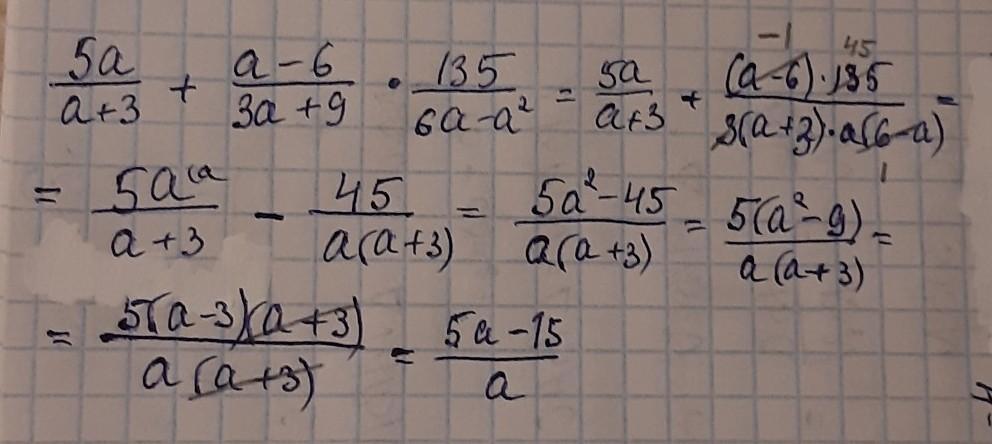 5a/(a+3) + (a-6)/(3a+9) · 135/(6a-a²) = 5a/(a+3) + ((a-6)·135)/(3(a+3)·a(6-a)) = -1 45 1
= 5a⁽ᵃ/(a+3) - 45/(a(a+3)) = (5a²-45)/(a(a+3)) = 5(a²-9)/(a(a+3)) =
= 5(a-3)(a+3)/(a(a+3)) = (5a-15)/a